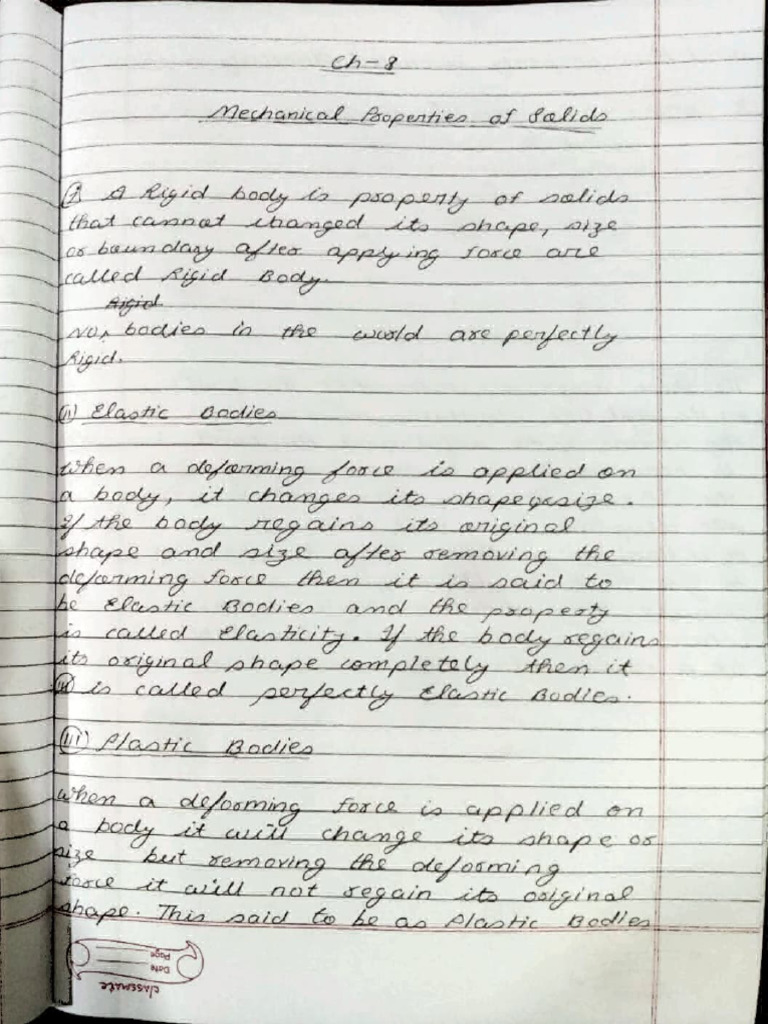 Ch-8
Mechanical Properties of Solids
(i) A Rigid body is property of solids
that cannot changed its shape, size
or boundary after applying force are
called Rigid Body.
Rigid
No, bodies in the world are perfectly
Rigid.
(ii) Elastic Bodies
When a deforming force is applied on
a body, it changes its shape or size.
If the body regains its original
shape and size after removing the
deforming force then it is said to
be Elastic Bodies and the property
is called Elasticity. If the body regains
its original shape completely then it
is called perfectly Elastic Bodies.
(iii) Plastic Bodies
When a deforming force is applied on
a body it will change its shape or
size but removing the deforming
force it will not regain its original
shape. This said to be as Plastic Bodies
classmate
Date
Page